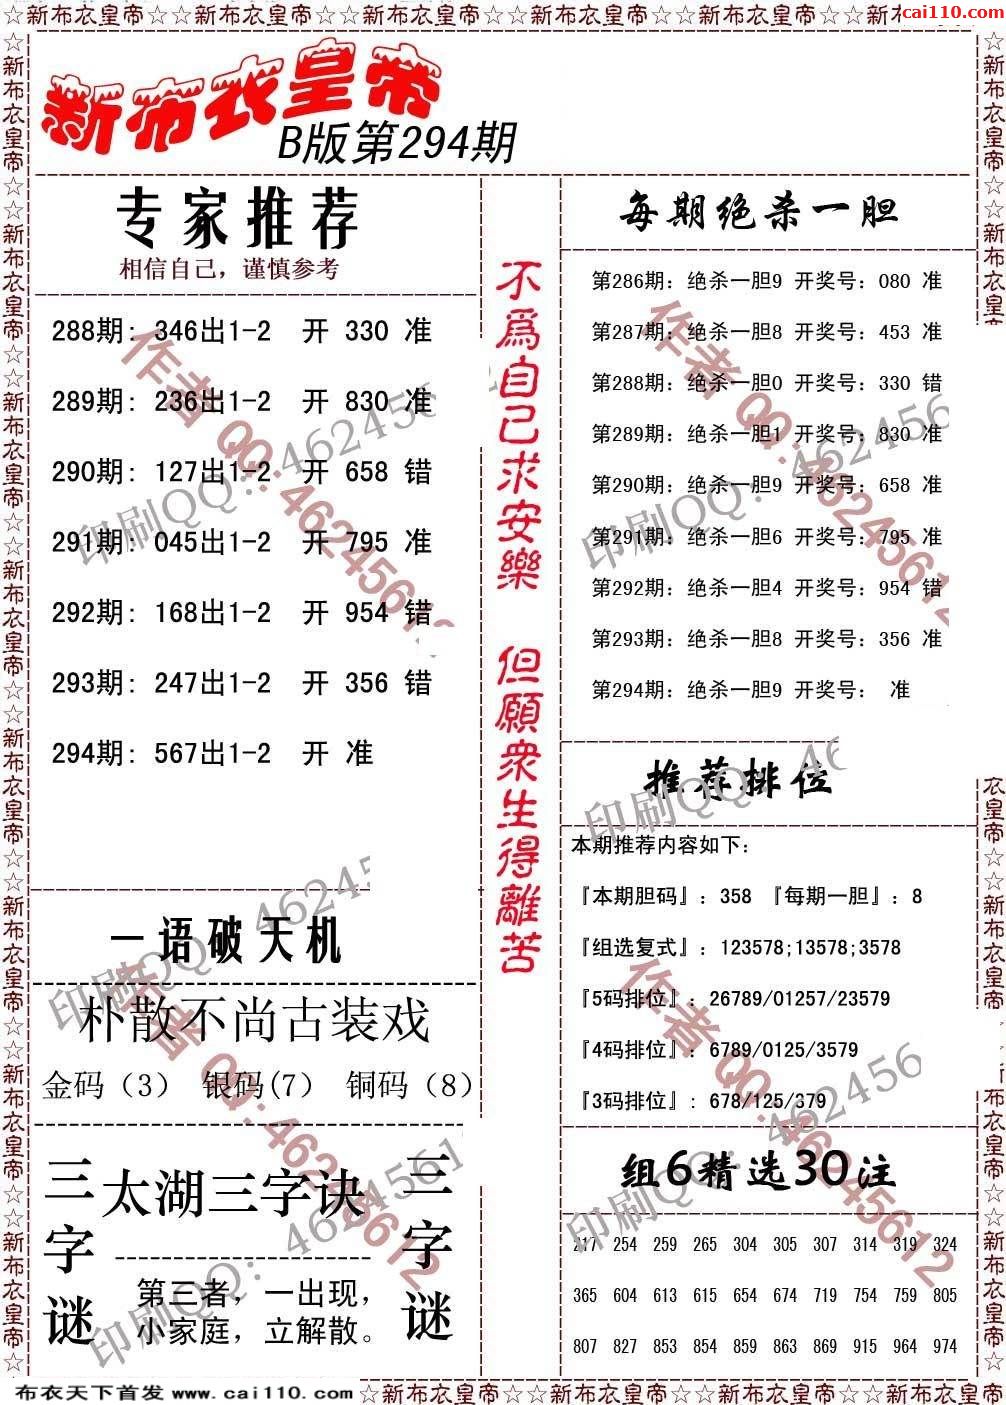 ☆新布衣皇帝☆☆新布衣皇帝☆☆新布衣皇帝☆☆新布衣皇帝☆☆新布衣皇帝☆☆新
cai110.com
新布衣皇帝
B版第294期
专家推荐
相信自己，谨慎参考
288期: 346出1-2 开 330 准
289期: 236出1-2 开 830 准
290期: 127出1-2 开 658 错
291期: 045出1-2 开 795 准
292期: 168出1-2 开 954 错
293期: 247出1-2 开 356 错
294期: 567出1-2 开 准
一语破天机
朴散不尚古装戏
金码（3） 银码(7） 铜码（8）
三字谜
太湖三字诀
第三者，一出现，
小家庭，立解散。
三字谜
不爲自己求安樂 但願衆生得離苦
每期绝杀一胆
第286期: 绝杀一胆9 开奖号: 080 准
第287期: 绝杀一胆8 开奖号: 453 准
第288期: 绝杀一胆0 开奖号: 330 错
第289期: 绝杀一胆1 开奖号: 830 准
第290期: 绝杀一胆9 开奖号: 658 准
第291期: 绝杀一胆6 开奖号: 795 准
第292期: 绝杀一胆4 开奖号: 954 错
第293期: 绝杀一胆8 开奖号: 356 准
第294期: 绝杀一胆9 开奖号: 准
推荐排位
本期推荐内容如下:
『本期胆码』: 358 『每期一胆』: 8
『组选复式』: 123578;13578;3578
『5码排位』: 26789/01257/23579
『4码排位』: 6789/0125/3579
『3码排位』: 678/125/379
组6精选30注
217 254 259 265 304 305 307 314 319 324
365 604 613 615 654 674 719 754 759 805
807 827 853 854 859 863 869 915 964 974
作者 QQ:46245612
印刷QQ: 462456
作者 QQ:46245612
印刷QQ: 462456
印刷QQ: 46
印刷QQ: 46245
作者 QQ:46245612
作者 QQ:46245612
印刷QQ: 462456
印刷QQ: 4624561
布衣天下首发 www.cai110.com
☆新布衣皇帝☆☆新布衣皇帝☆☆新布衣皇帝☆☆新布衣皇帝☆